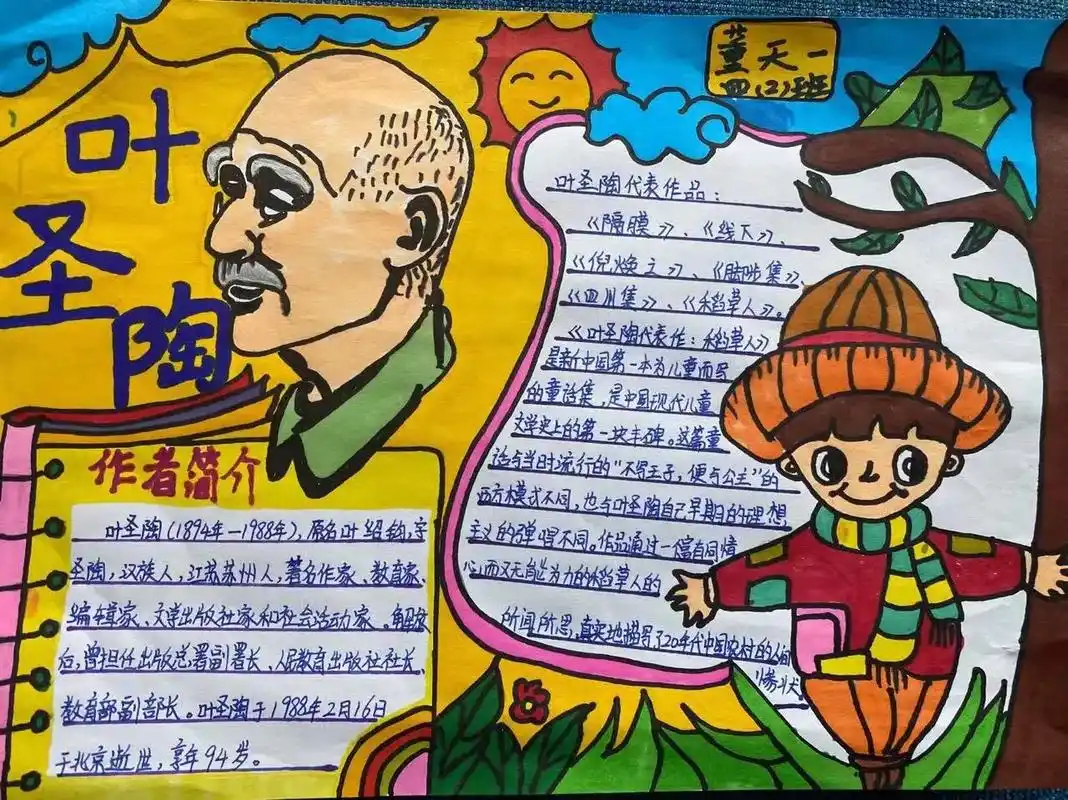 叶圣陶
董天一
四(2)班
叶圣陶代表作品：
《隔膜》、《线下》、
《倪焕之》、《脚步集》
《四川集》、《稻草人》。
《叶圣陶代表作：稻草人》
是新中国第一本为儿童而写
的童话集，是中国现代儿童
文学史上的第一块丰碑。这篇童
话与当时流行的“不写王子，便写公主”的
西方模式不同，也与叶圣陶自己早期的理想
主义的弹唱不同。作品通过一个富有同情
心而又无能为力的稻草人的
所闻所思，真实地描写了20年代中国农村的人间
惨状。
作者简介
叶圣陶(1894年—1988年)，原名叶绍钧，字
圣陶，汉族人，江苏苏州人，著名作家、教育家、
编辑家、文学出版社家和社会活动家。解放
后，曾担任出版总署副署长、人民教育出版社社长、
教育部副部长。叶圣陶于1988年2月16日
于北京逝世，享年94岁。